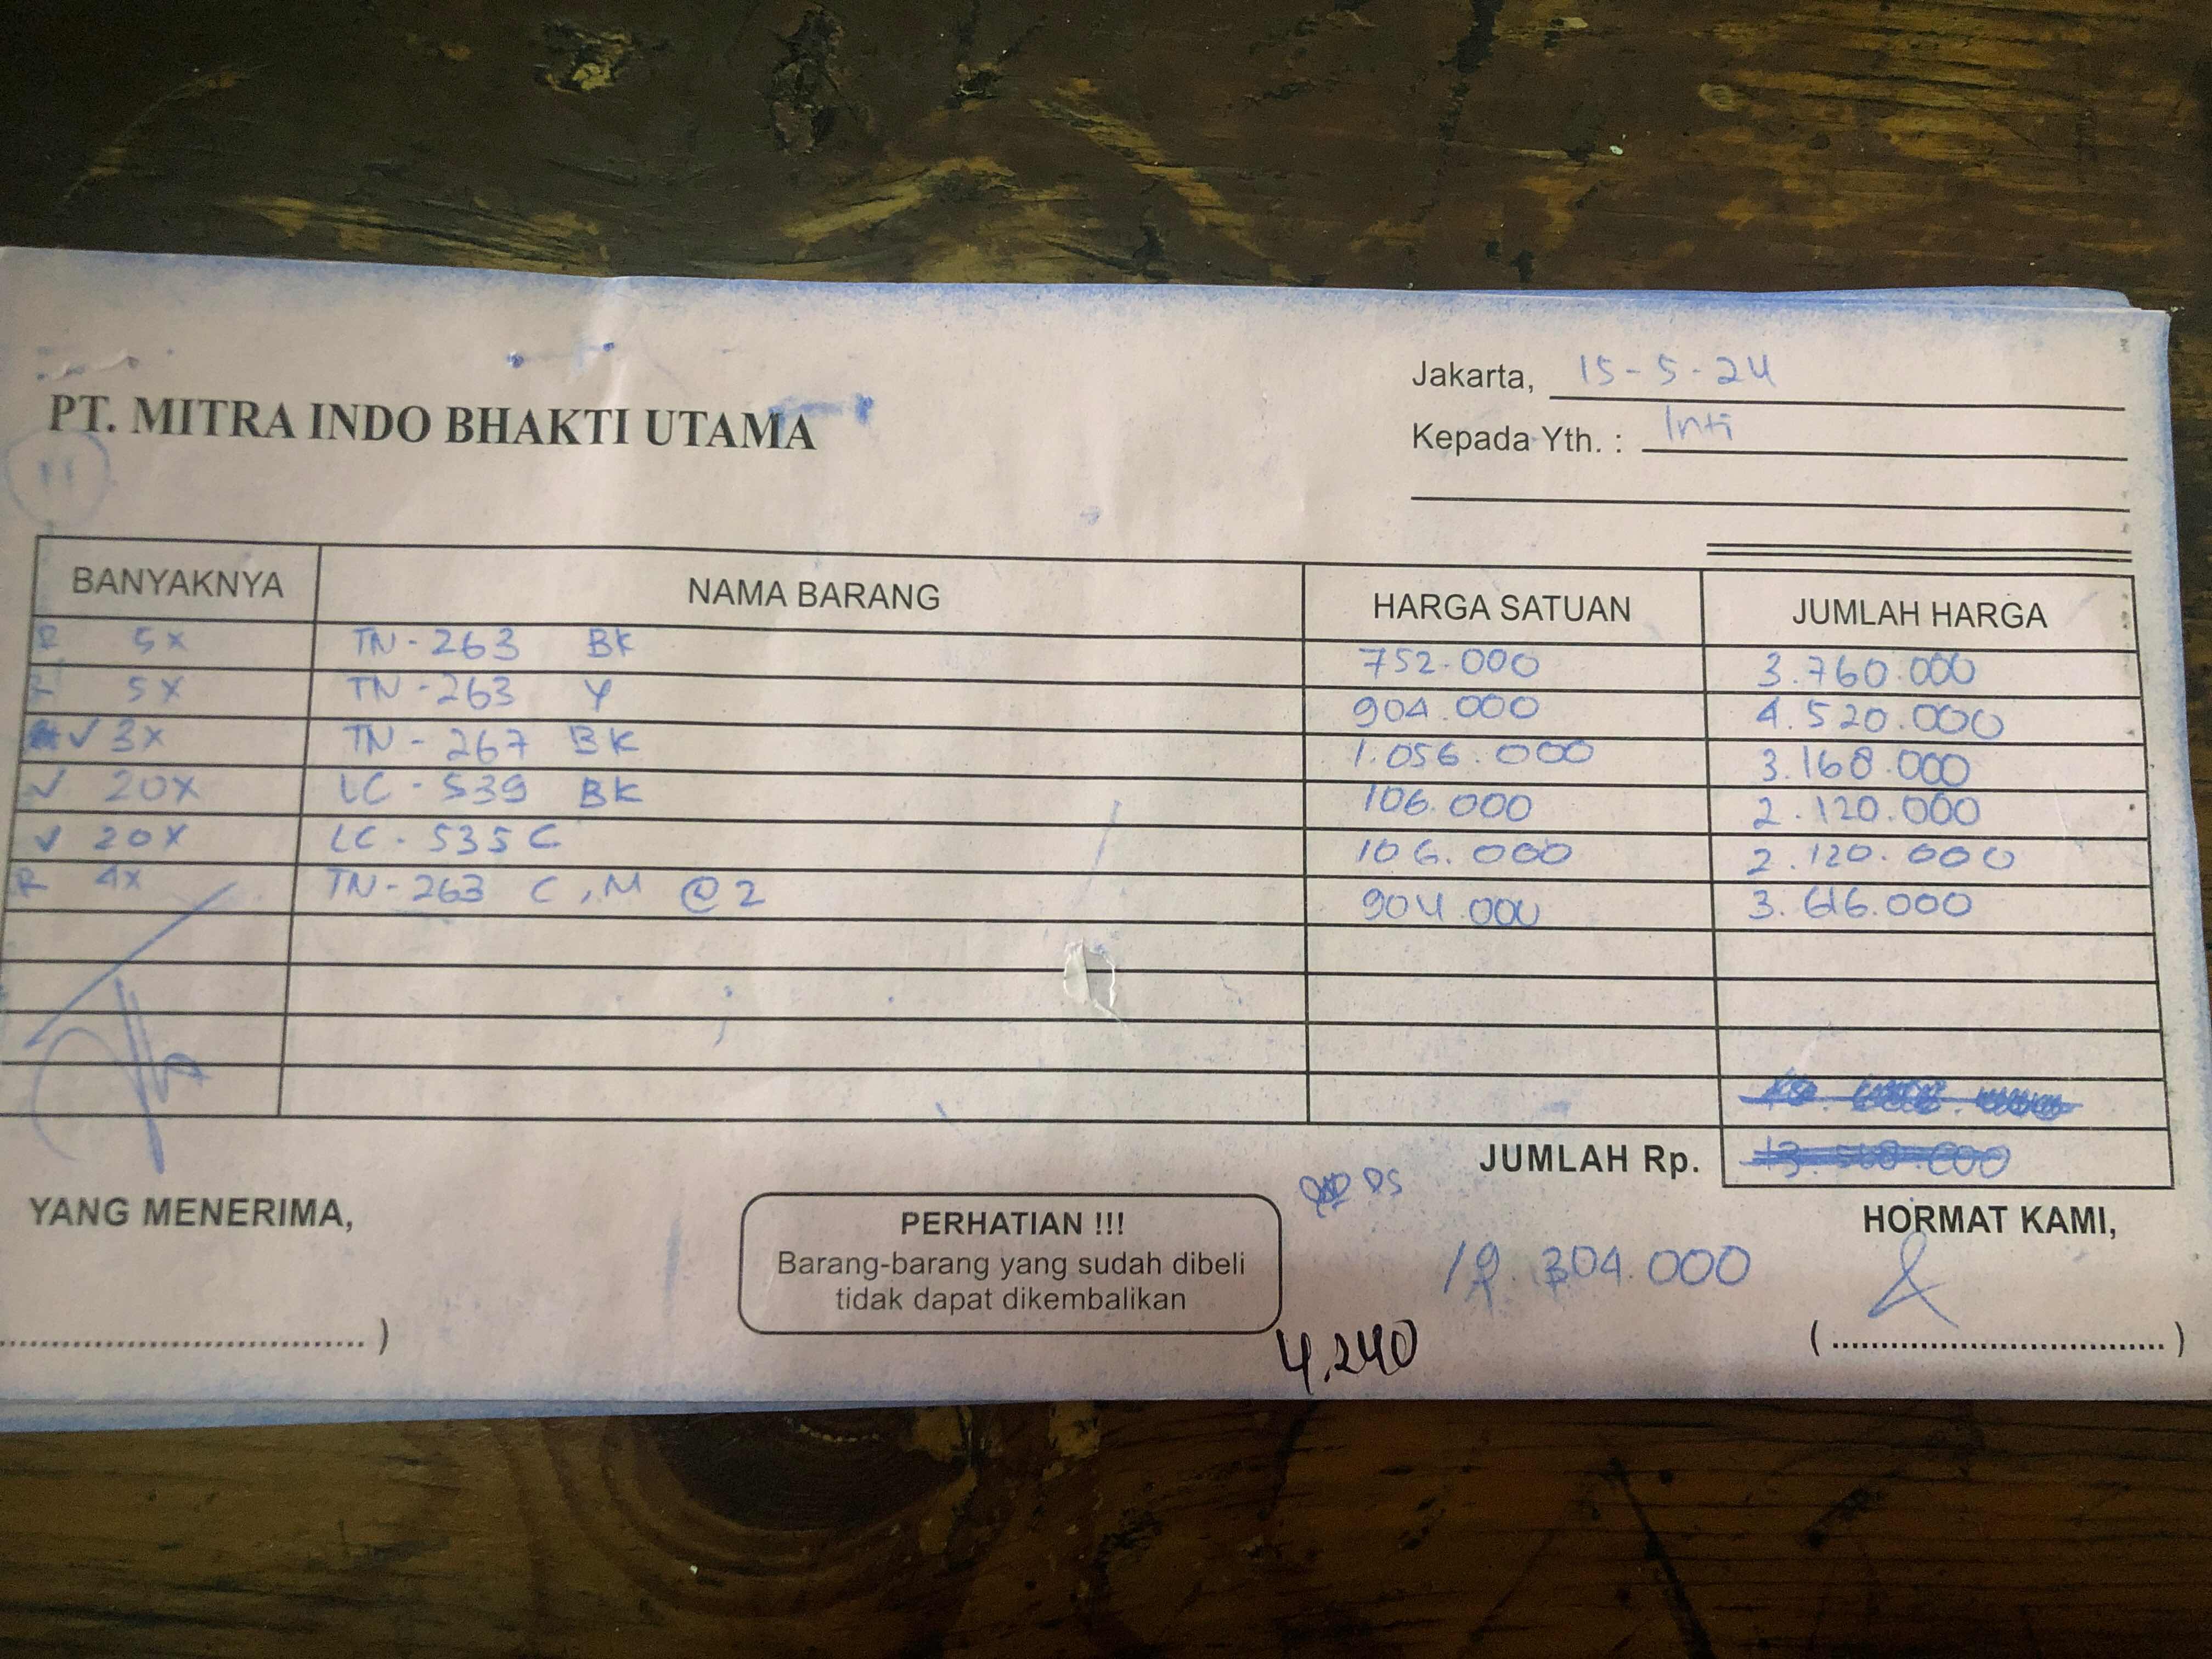 PT. MITRA INDO BHAKTI UTAMA
11
Jakarta, 15-5-24
Kepada Yth. : Inti
BANYAKNYA NAMA BARANG HARGA SATUAN JUMLAH HARGA
R 5x TN-263 BK 752.000 3.760.000
5x TN-263 Y 904.000 4.520.000
✓ 3x TN-267 BK 1.056.000 3.168.000
✓ 20x LC-539 BK 106.000 2.120.000
✓ 20x LC-535 C 106.000 2.120.000
R 4x TN-263 C, M @2 904.000 3.616.000
JUMLAH Rp.
YANG MENERIMA,
PERHATIAN !!!
Barang-barang yang sudah dibeli
tidak dapat dikembalikan
HORMAT KAMI,
19.304.000
4.240